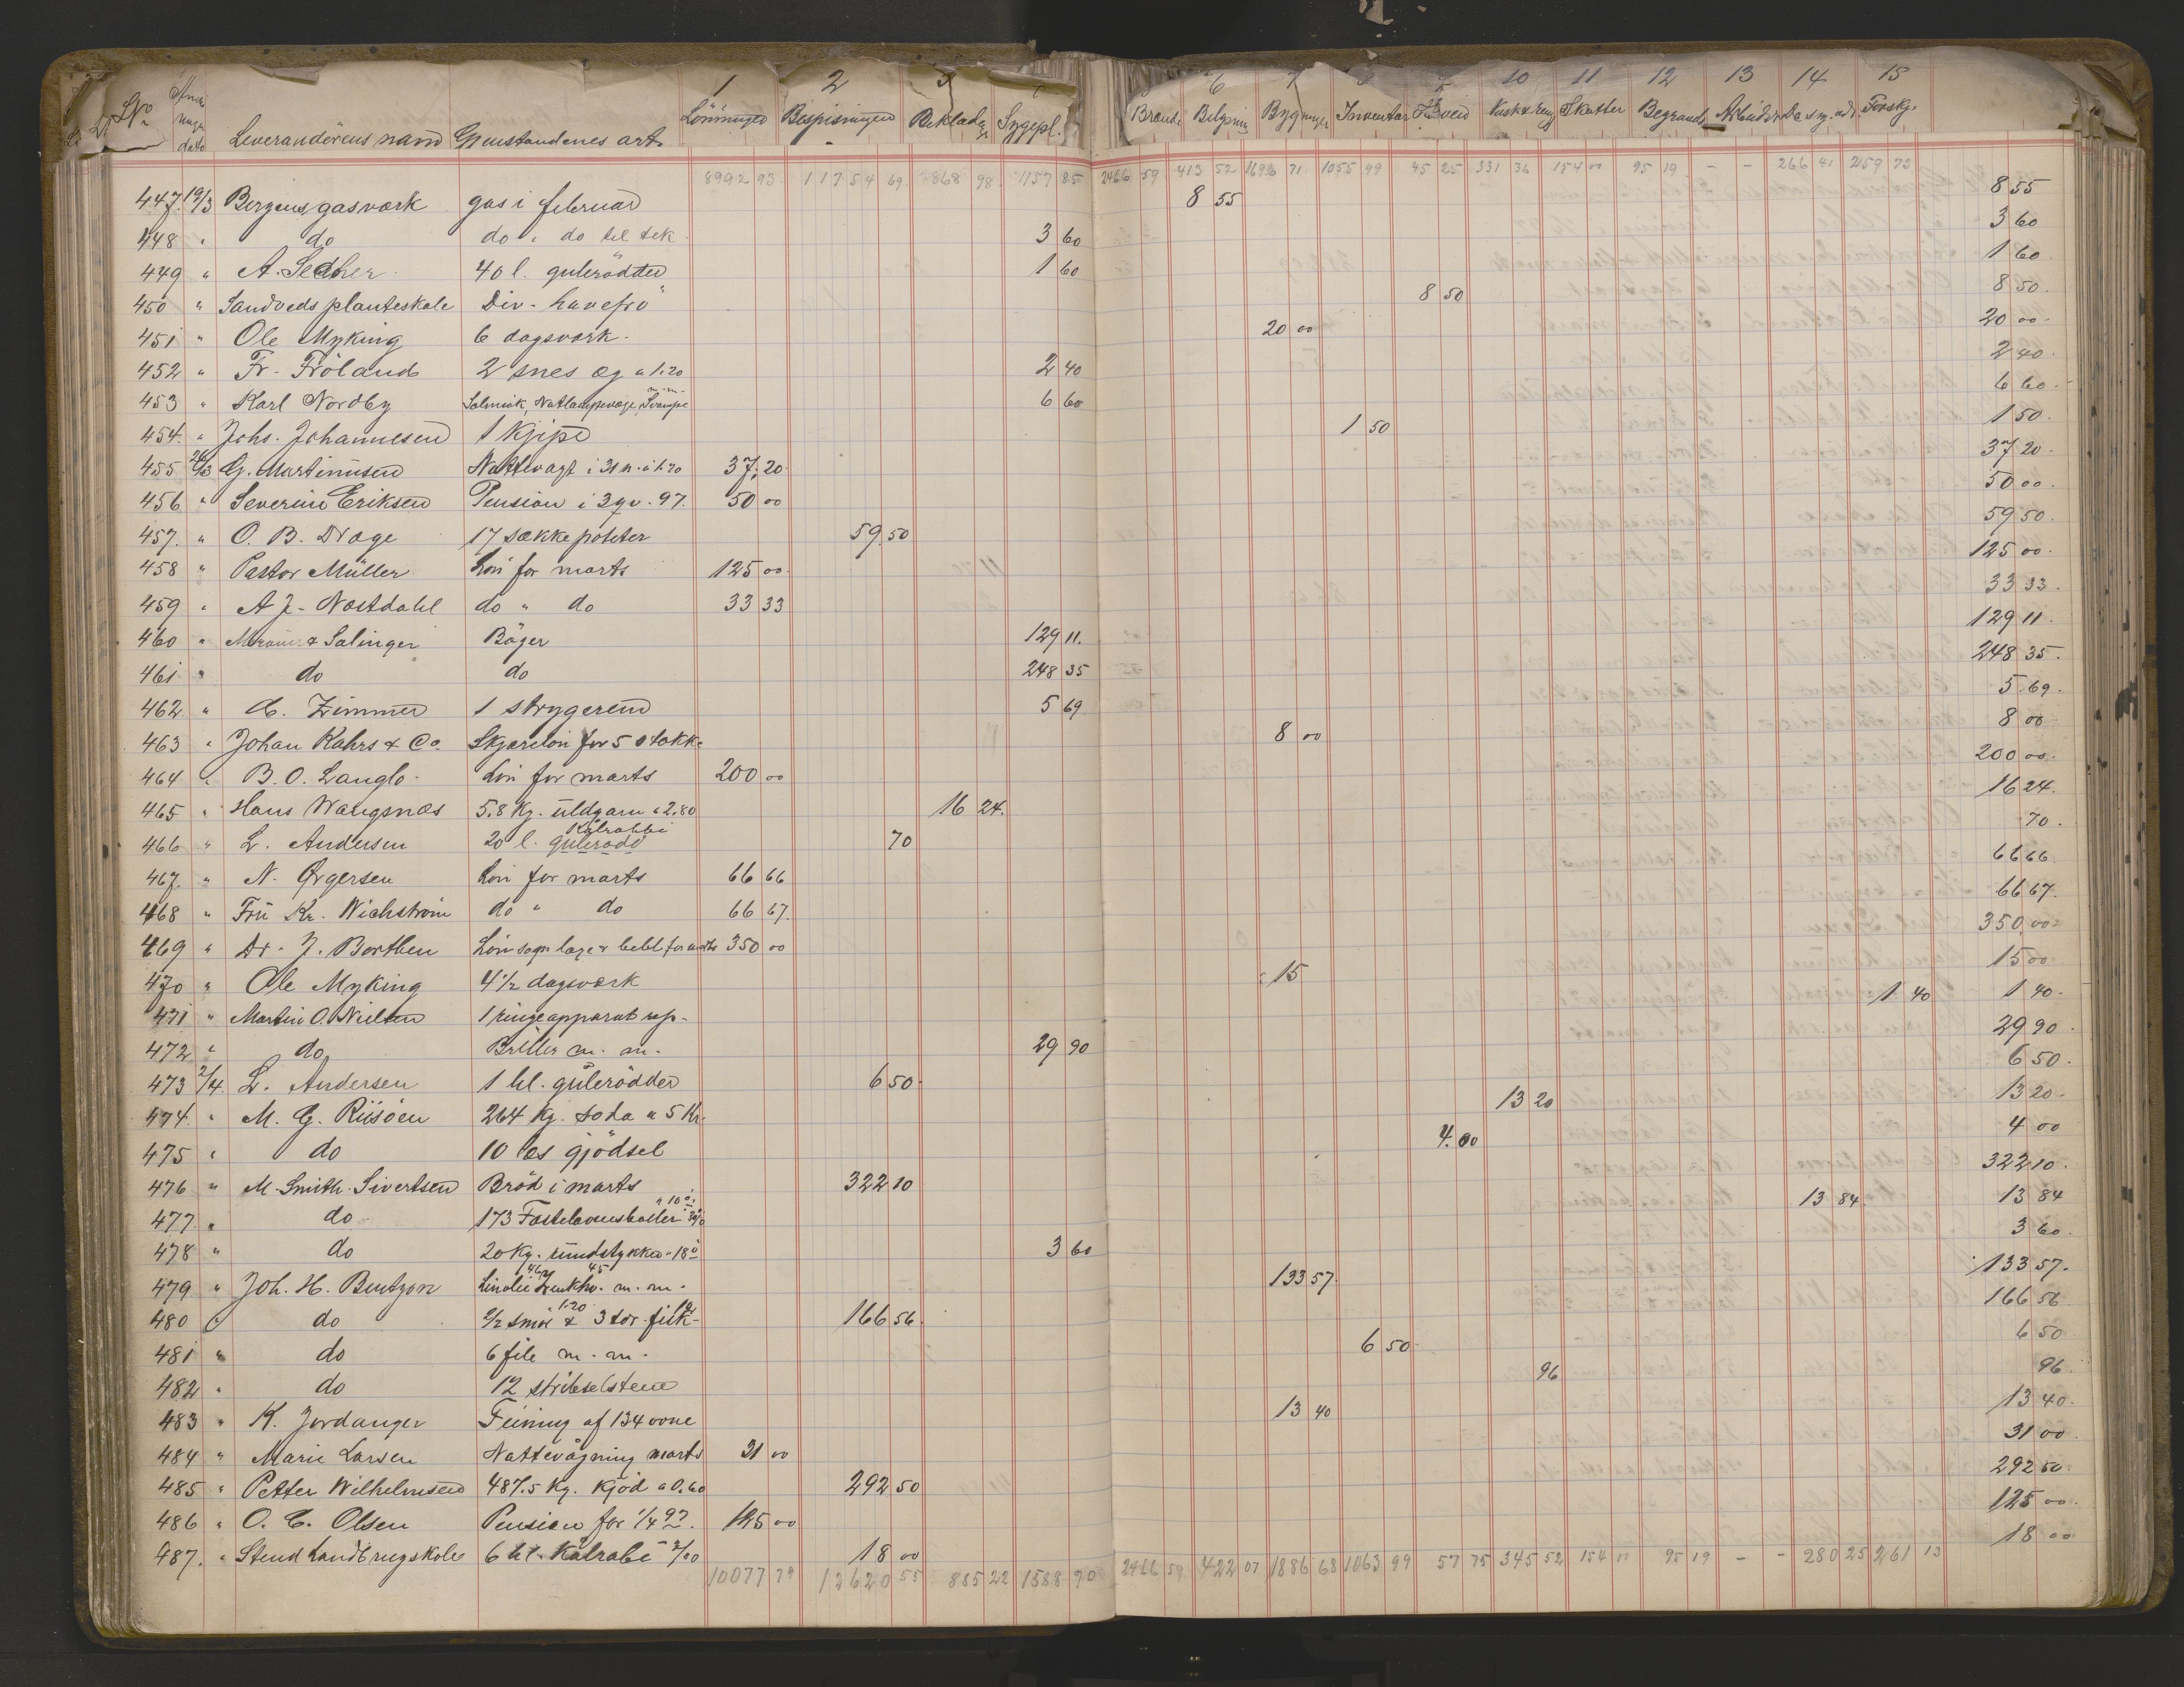 1 2 3 6 7 10 11 12 13 14 15
No Leverandörens navn Gjenstandenes art Lönninger Bespisningen Beklædn. Sygepl. Brænde Belysning Bygninger Inventar Skatter Begravels
8992 93 11754 69 868 98 1157 85 2466 59 413 52 1696 71 1055 99 45 25 331 36 154 00 95 19 - - 266 41 259 73
447. 19/3 Bergens gasværk gas i februar 8 55 8 55
448 " do do " do til 3 60 3 60
449 " A. 40 l. gulerödder 1 60 1 60
450 " Sandveds planteskole Div. havefrö 8 50 8 50.
451 " Ole Myking 6 dagsværk. 20 00 20 00
452 " Fr. Fröland 2 snes æg a 1.20 2 40 2 40.
453 " Karl Nordby Salmiak, Natlampevæge, Svampe m.m. 6 60 6 60
454. " Johs. Johannesen 1 Kjipe 1 50 1 50.
455 26/3 G. Martinusen Nattevagt i 31 n. a 1.20 37.20. 37 20.
456 " Severin Eriksen Pension i 3 qv. 97. 50 00 50 00.
457. " O. B. Drage 17 sække poteter 59.50 59 50.
458 " Pastor Müller Lön for marts 125 00. 125 00.
459 " A. J. Nostdahl do " do 33 33 33 33.
460 " & Salinger Böger 129 11. 129 11.
461 " do do 248 35 248 35.
462 " C. Zimmer 1 5 69 5 69.
463 " Johan Kahrs & Co. Skjærelön for 5 stokke 8 00 8 00
464 " B. O. Langlo. Lön for marts 200 00 200 00.
465 " Hans Wangsnæs 5.8 Kg. uldgarn a 2.80 16 24. 16 24.
466 " L. Andersen 20 l. gulerödd Kålrabbi 70 70.
467. " N. Ørgersen Lön for marts 66 66 66 66.
468 " Fru Kr. Wichström do " do 66 67. 66 67.
469 " Dr. J. Borthen Lön for marts 350 00 350 00
470 " Ole Myking 4 1/2 dagsværk 15 15 00
471 " Martin O. Nielsen 1 ringeapparat rep. 1 40 1 40.
472 " do Briller m. m. 29 90 29 90
473 2/4. L. Andersen 1 hl. gulerödder 6 50. 6 50.
474. " M. G. Riisöen 264 Kg. soda a 5 Kr. 13 20 13 20
475 " do 10 læs gjödsel 4.00 4 00
476 " M. Smith Sivertsen Bröd i marts 322 10 322 10.
477. " do 173 Fastelavnsboller 13 84. 13 84
478 " do 20 Kg. rundstykker a 18 ö 3 60 3 60.
479 " Joh. H. Bentzon m. m. 133 57. 133 57.
480 " do 2/2 smör & 3 tör fisk 166 56. 166 56
481 " do 6 file m. m. 6 50. 6 50
482 " do 12 96 96.
483 " K. Jordanger Feining af 134 ovne 13 40 13 40.
484 " Marie Larsen Nattevågning marts 31 00 31 00.
485 " Petter Wilhelmsen 487.5 Kg. Kjöd a 0.60 292 50 292 50.
486 " O. C. Olsen Pension for 1/4 97. 125 00 125 00.
487. " Stend Landbrugskole 6 hl. Kålrabi 18 00 18 00
10077 79 12620 55 885 22 1588 90 2466 59 422 07 1886 68 1063 99 57 75 345 52 154 00 95 19 - - 280 25 261 13